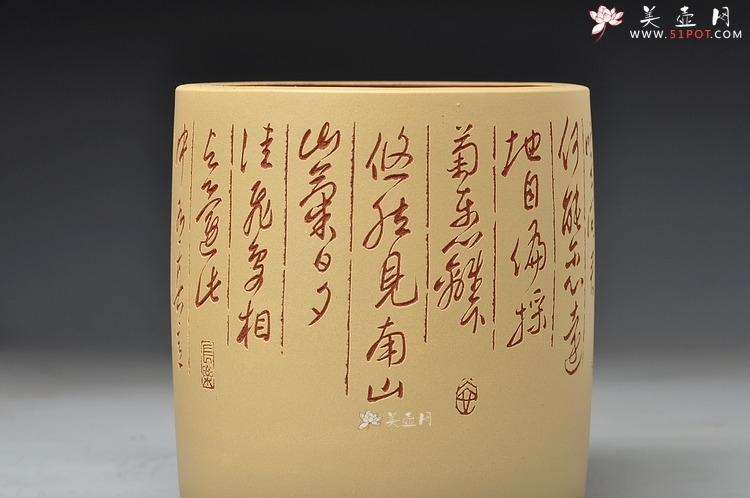 美壶网
WWW.51POT.COM
何能尔心遠
地自偏採
菊东籬下
悠然見南山
山氣日夕
佳飛鳥相
与還此
中
美壶网